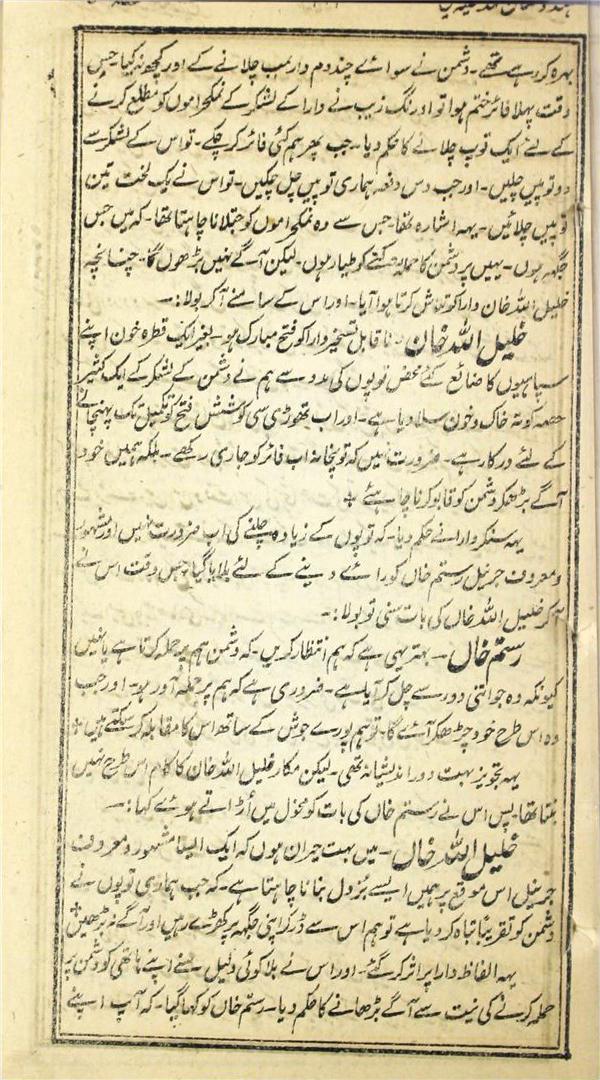 بہرہ کر رہے تھے۔ دشمن نے سوائے چند دم دار بمب چلانے کے اور کچھ نہ کیا۔ جس
وقت پہلا فائر ختم ہوا تو اورنگ زیب نے دارا کے لشکر کے نمکحراموں کو مطلع کرنے
کے لئے ایک توپ چلانے کا حکم دیا۔ جب پھر ہم کئی فائر کر چکے۔ تو اس کے لشکر سے
دو توپیں چلیں۔ اور جب دس دفعہ ہماری توپیں چل چکیں۔ تو اس نے یک لخت تین
توپیں چلائیں۔ یہہ اشارہ تھا۔ جس سے وہ نمکحراموں کو جتلانا چاہتا تھا۔ کہ میں جس
جگہہ ہوں۔ یہیں پر دشمن کا حملہ روکنے کو طیار ہوں۔ لیکن آگے نہیں بڑھوں گا۔ چنانچہ
خلیل اللہ خان دارا کو تلاش کرتا ہوا آیا۔ اور اس کے سامنے آ کر بولا:۔
خلیل اللہ خان۔ ناقابل تسخیر دارا کو فتح مبارک ہو۔ بغیر ایک قطرہ خون اپنے
سپاہیوں کا ضائع کئے محض توپوں کی مدد سے ہم نے دشمن کے لشکر کے ایک کثیر
حصہ کو تہ خاک و خون سلا دیا ہے۔ اور اب تھوڑی سی کوشش فتح کو تکمیل تک پہنچانے
کے لئے درکار ہے۔ ضرورت نہیں کہ توپخانہ اب فائر کو جاری رکھے۔ بلکہ ہمیں خود
آگے بڑھکر دشمن کو قابو کرنا چاہئے ٭
یہہ سنکر دارا نے حکم دیا۔ کہ توپوں کے زیادہ چلنے کی اب ضرورت نہیں اور مشہور
و معروف جرنیل رستم خاں کو رائے دینے کے لئے بلایا گیا جس وقت اس نے
آ کر خلیل اللہ خاں کی بات سنی تو بولا:۔
رستم خاں۔ بہتر یہی ہے کہ ہم انتظار کریں۔ کہ دشمن ہم پر حملہ کرتا ہے یا نہیں
کیونکہ وہ جو اتنی دور سے چل کر آیا ہے۔ ضروری ہے کہ ہم پر حملہ آور ہو۔ اور جب
وہ اس طرح خود چڑھکر آئے گا۔ تو ہم پورے جوش کے ساتھ اس کا مقابلہ کر سکتے ہیں ٭
یہہ تجویز بہت دور اندیشانہ تھی۔ لیکن مکار خلیل اللہ خان کا کام اس طرح نہیں
بنتا تھا۔ پس اس نے رستم خاں کی بات کو مخول میں اُڑاتے ہوئے کہا:۔
خلیل اللہ خاں۔ میں بہت حیران ہوں کہ ایک ایسا مشہور و معروف
جرنیل اس موقع پر ہمیں ایسے بُزدل بنانا چاہتا ہے۔ کہ جب ہماری توپوں نے
دشمن کو تقریباً تباہ کر دیا ہے تو ہم اس سے ڈر کر اپنی جگہہ پر کھڑے رہیں اور آگے نہ بڑھیں ٭
یہہ الفاظ دارا پر اثر کر گئے۔ اور اس نے بلا کوئی دلیل سنے اپنے ہاتھی کو دشمن پر
حملہ کرنے کی نیت سے آگے بڑھانے کا حکم دیا۔ رستم خاں کو کہا گیا۔ کہ آپ اپنے